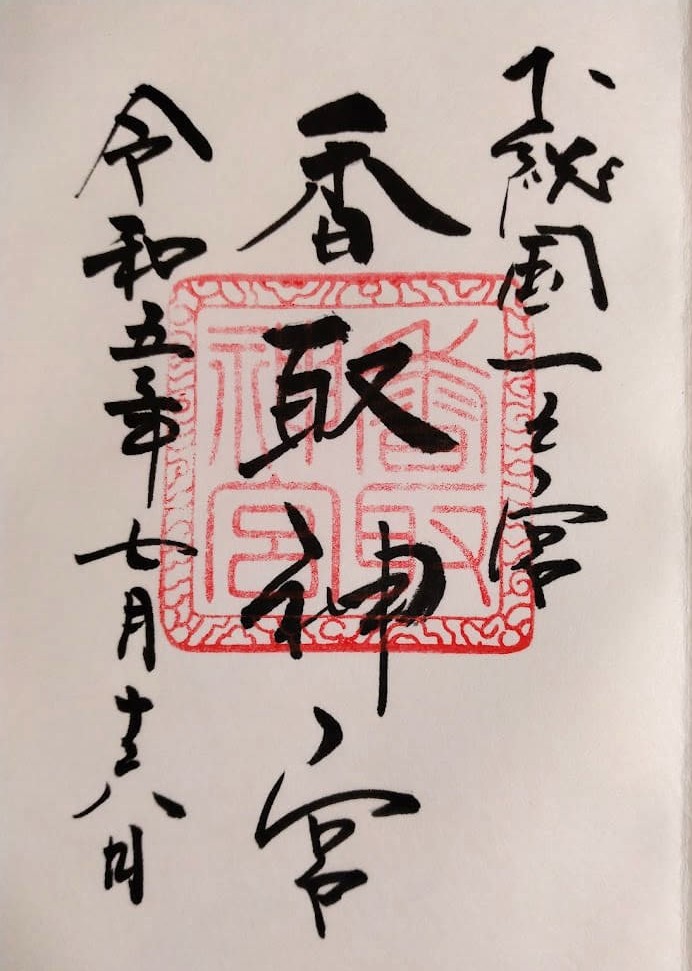 下総国一之宮
香取神宮
令和五年七月十八日
香取神宮